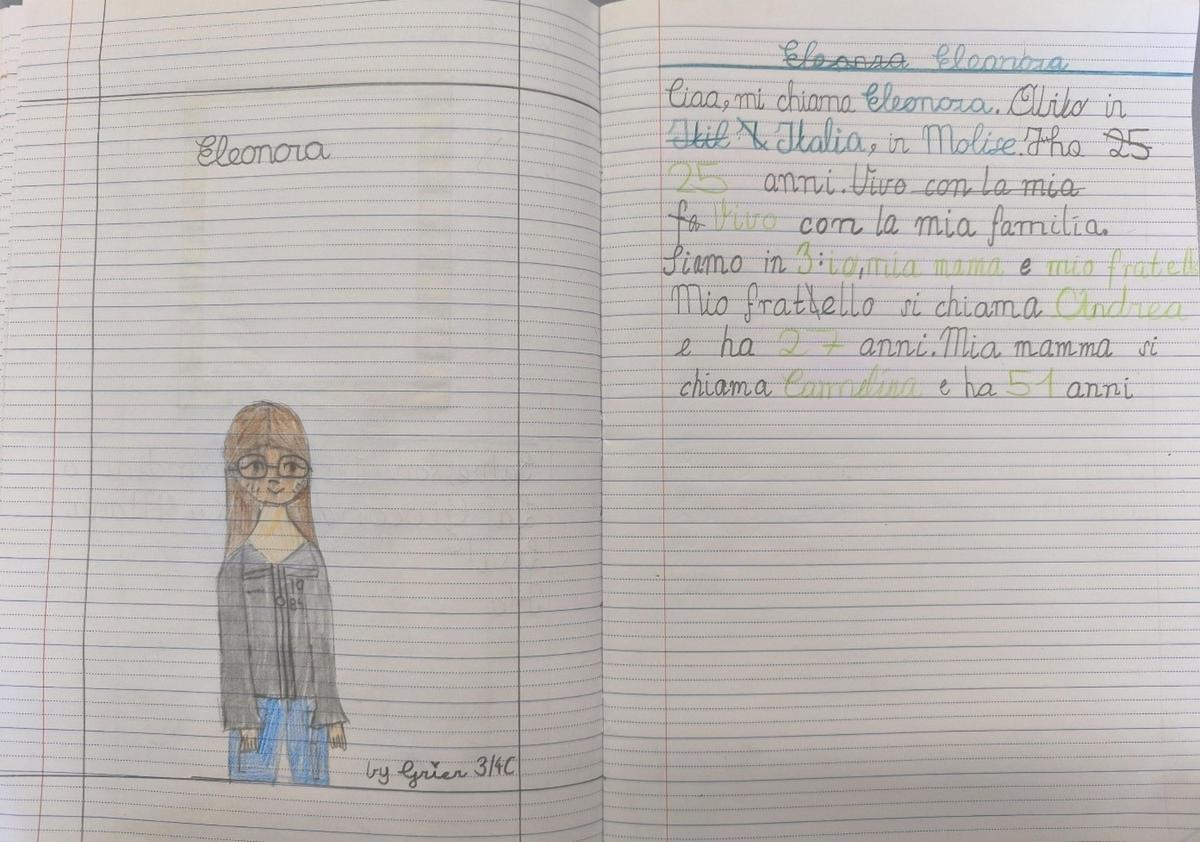 Eleonora
10
84
by Grier 3/4C
Eleonora Eleonora
Ciao, mi chiamo Eleonora. Abito in
Itil Italia, in Molise. Iho 25
25 anni. Vivo con la mia
fa Vivo con la mia familia.
Siamo in 3: io, mia mama e mio fratell
Mio frattello si chiama Andrea
e ha 27 anni. Mia mamma si
chiama Carmelina e ha 51 anni